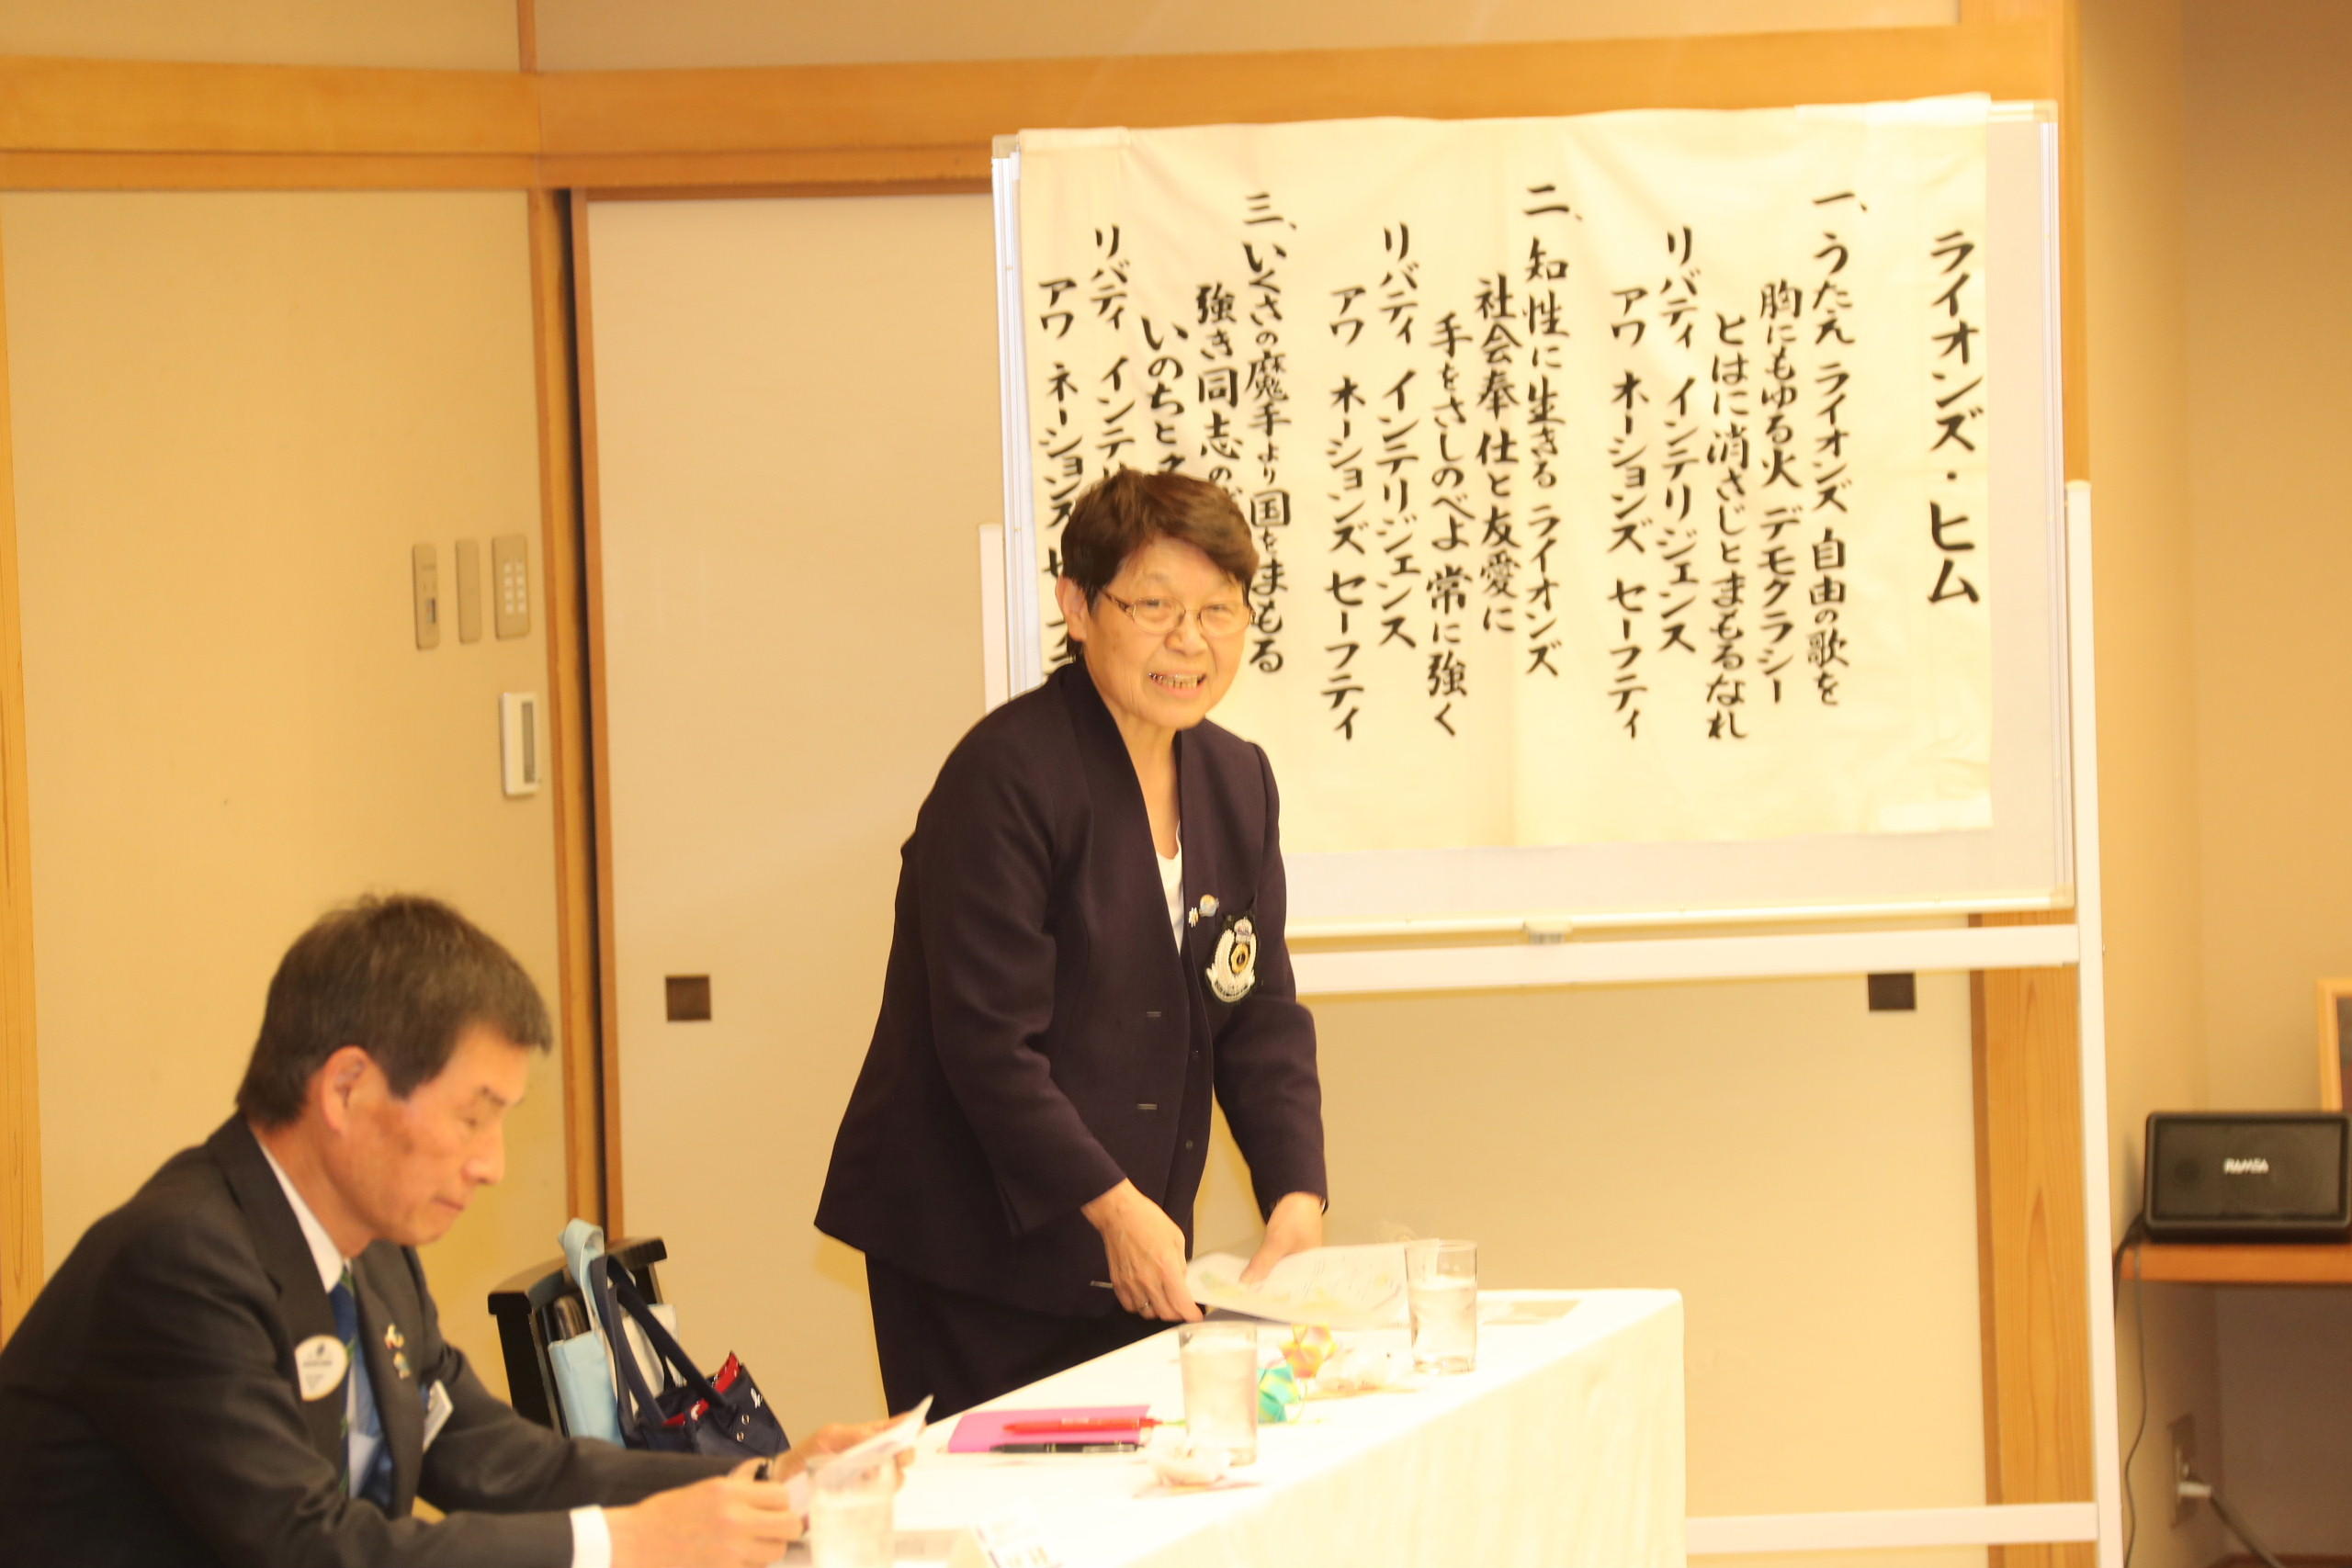 ライオンズ・ヒム
一、うたえ ライオンズ 自由の歌を
胸にもゆる火 デモクラシー
とはに消さじとまもるなれ
リバティ インテリジェンス
アワ ネーションズ セーフティ
二、知性に生きる ライオンズ
社会奉仕と友愛に
手をさしのべよ 常に強く
リバティ インテリジェンス
アワ ネーションズ セーフティ
三、いくさの魔手より国をまもる
強き同志の
いのちと
リバティ インテリ
アワ ネーションズ セ
RAMSA